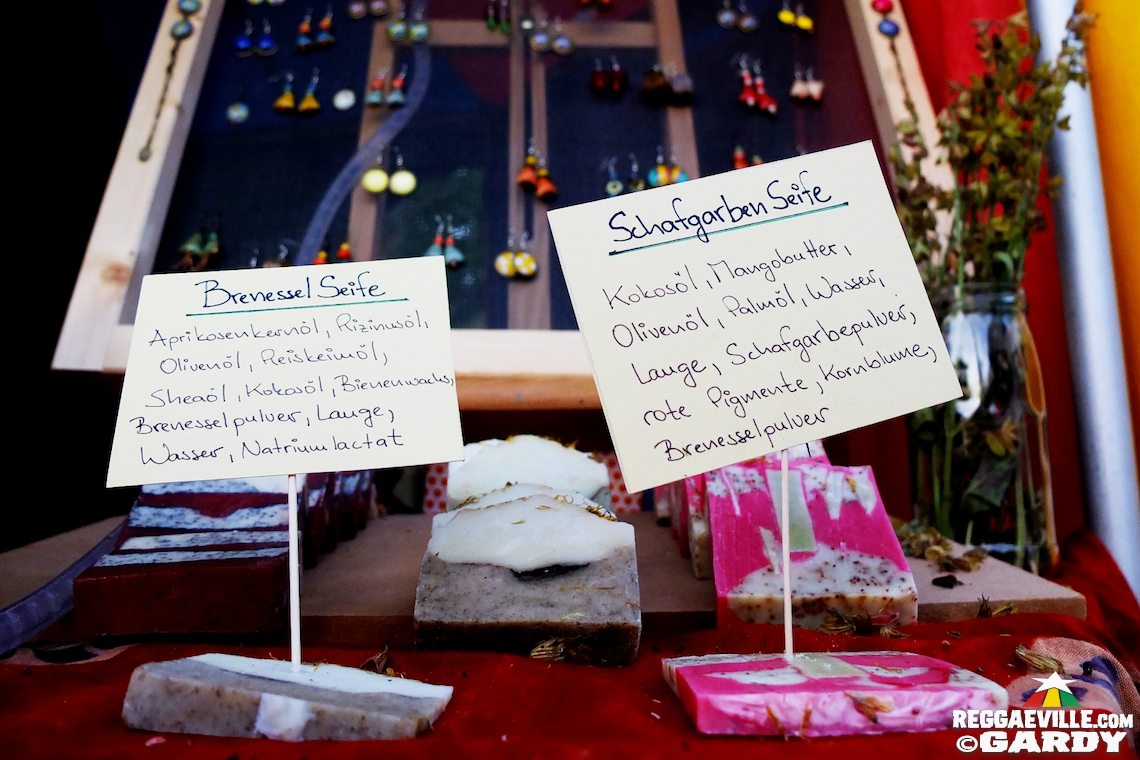 Brenessel Seife
Aprikosenkernöl, Rizinusöl,
Olivenöl, Reiskeimöl,
Sheaöl, Kokosöl, Bienenwachs,
Brenesselpulver, Lauge,
Wasser, Natriumlactat
Schafgarben Seife
Kokosöl, Mangobutter,
Olivenöl, Palmöl, Wasser,
Lauge, Schafgarbepulver,
rote Pigmente, Kornblume,
Brenesselpulver
REGGAEVILLE.COM
©GARDY